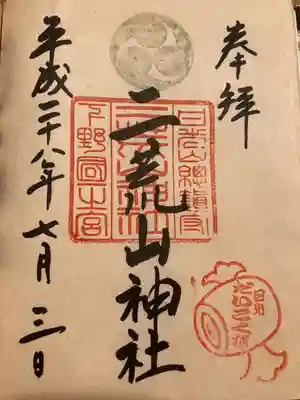 奉拝
日光山總鎮守
二荒山神社
下野國一之宮
二荒山神社
平成二十八年七月三日
日光
だいこく様